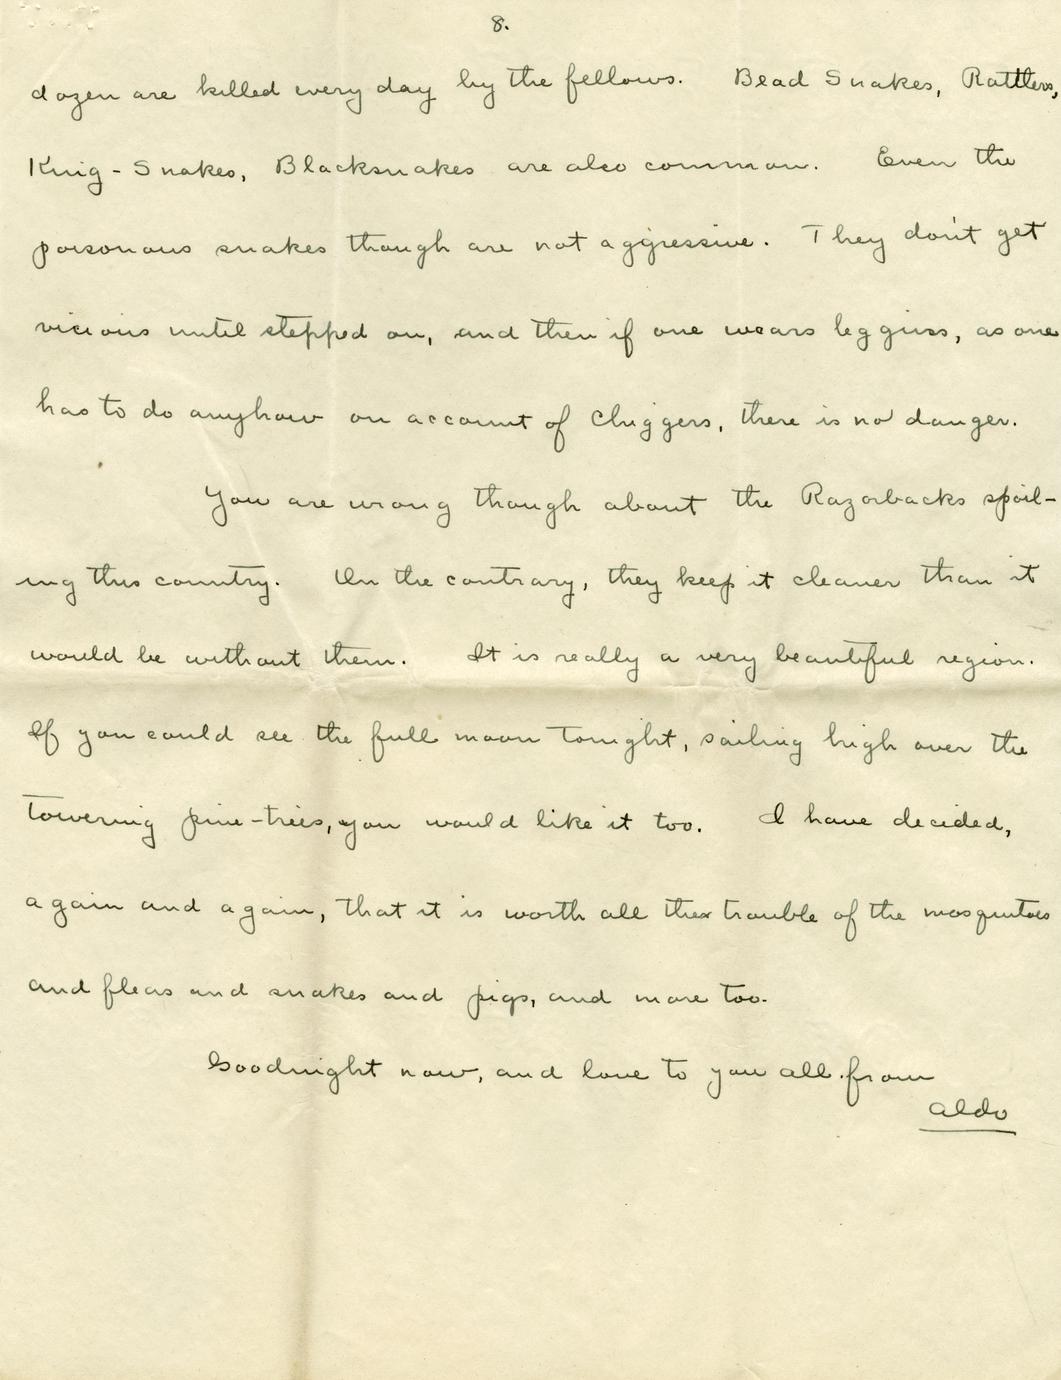 8.
dozen are killed every day by the fellows. Bead Snakes, Rattlers,
King-Snakes, Blacksnakes are also common. Even the
poisonous snakes though are not aggressive. They don't get
vicious until stepped on, and then if one wears leggins, as one
has to do anyhow on account of Chiggers, there is no danger.
You are wrong though about the Razorbacks spoil-
ing this country. On the contrary, they keep it cleaner than it
would be without them. It is really a very beautiful region.
If you could see the full moon tonight, sailing high over the
towering pine-trees, you would like it too. I have decided,
again and again, that it is worth all the trouble of the mosquitoes
and fleas and snakes and pigs, and more too.
Goodnight now, and love to you all from
Aldo